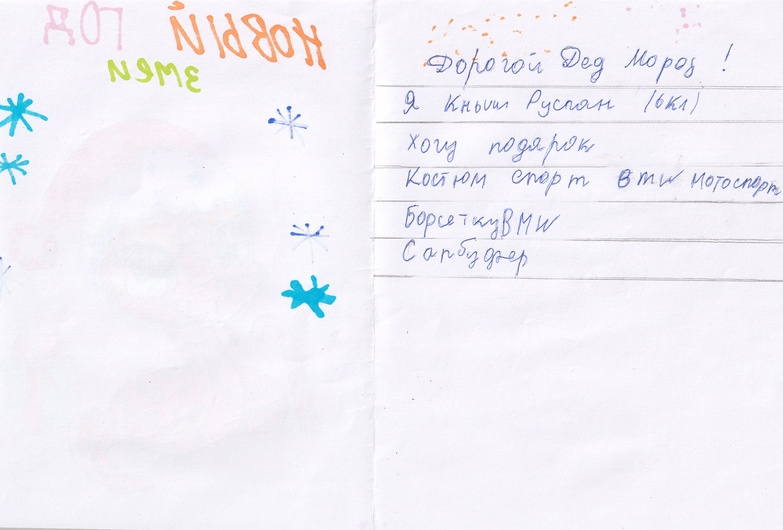 НОВЫЙ ГОД
ЗМЕИ
Дорогой Дед Мороз !
Я Кныш Руслан (6кл)
Хочу подярок
Костюм спорт BMW мотоспорт
Борсетку BMW
Сапбуфер